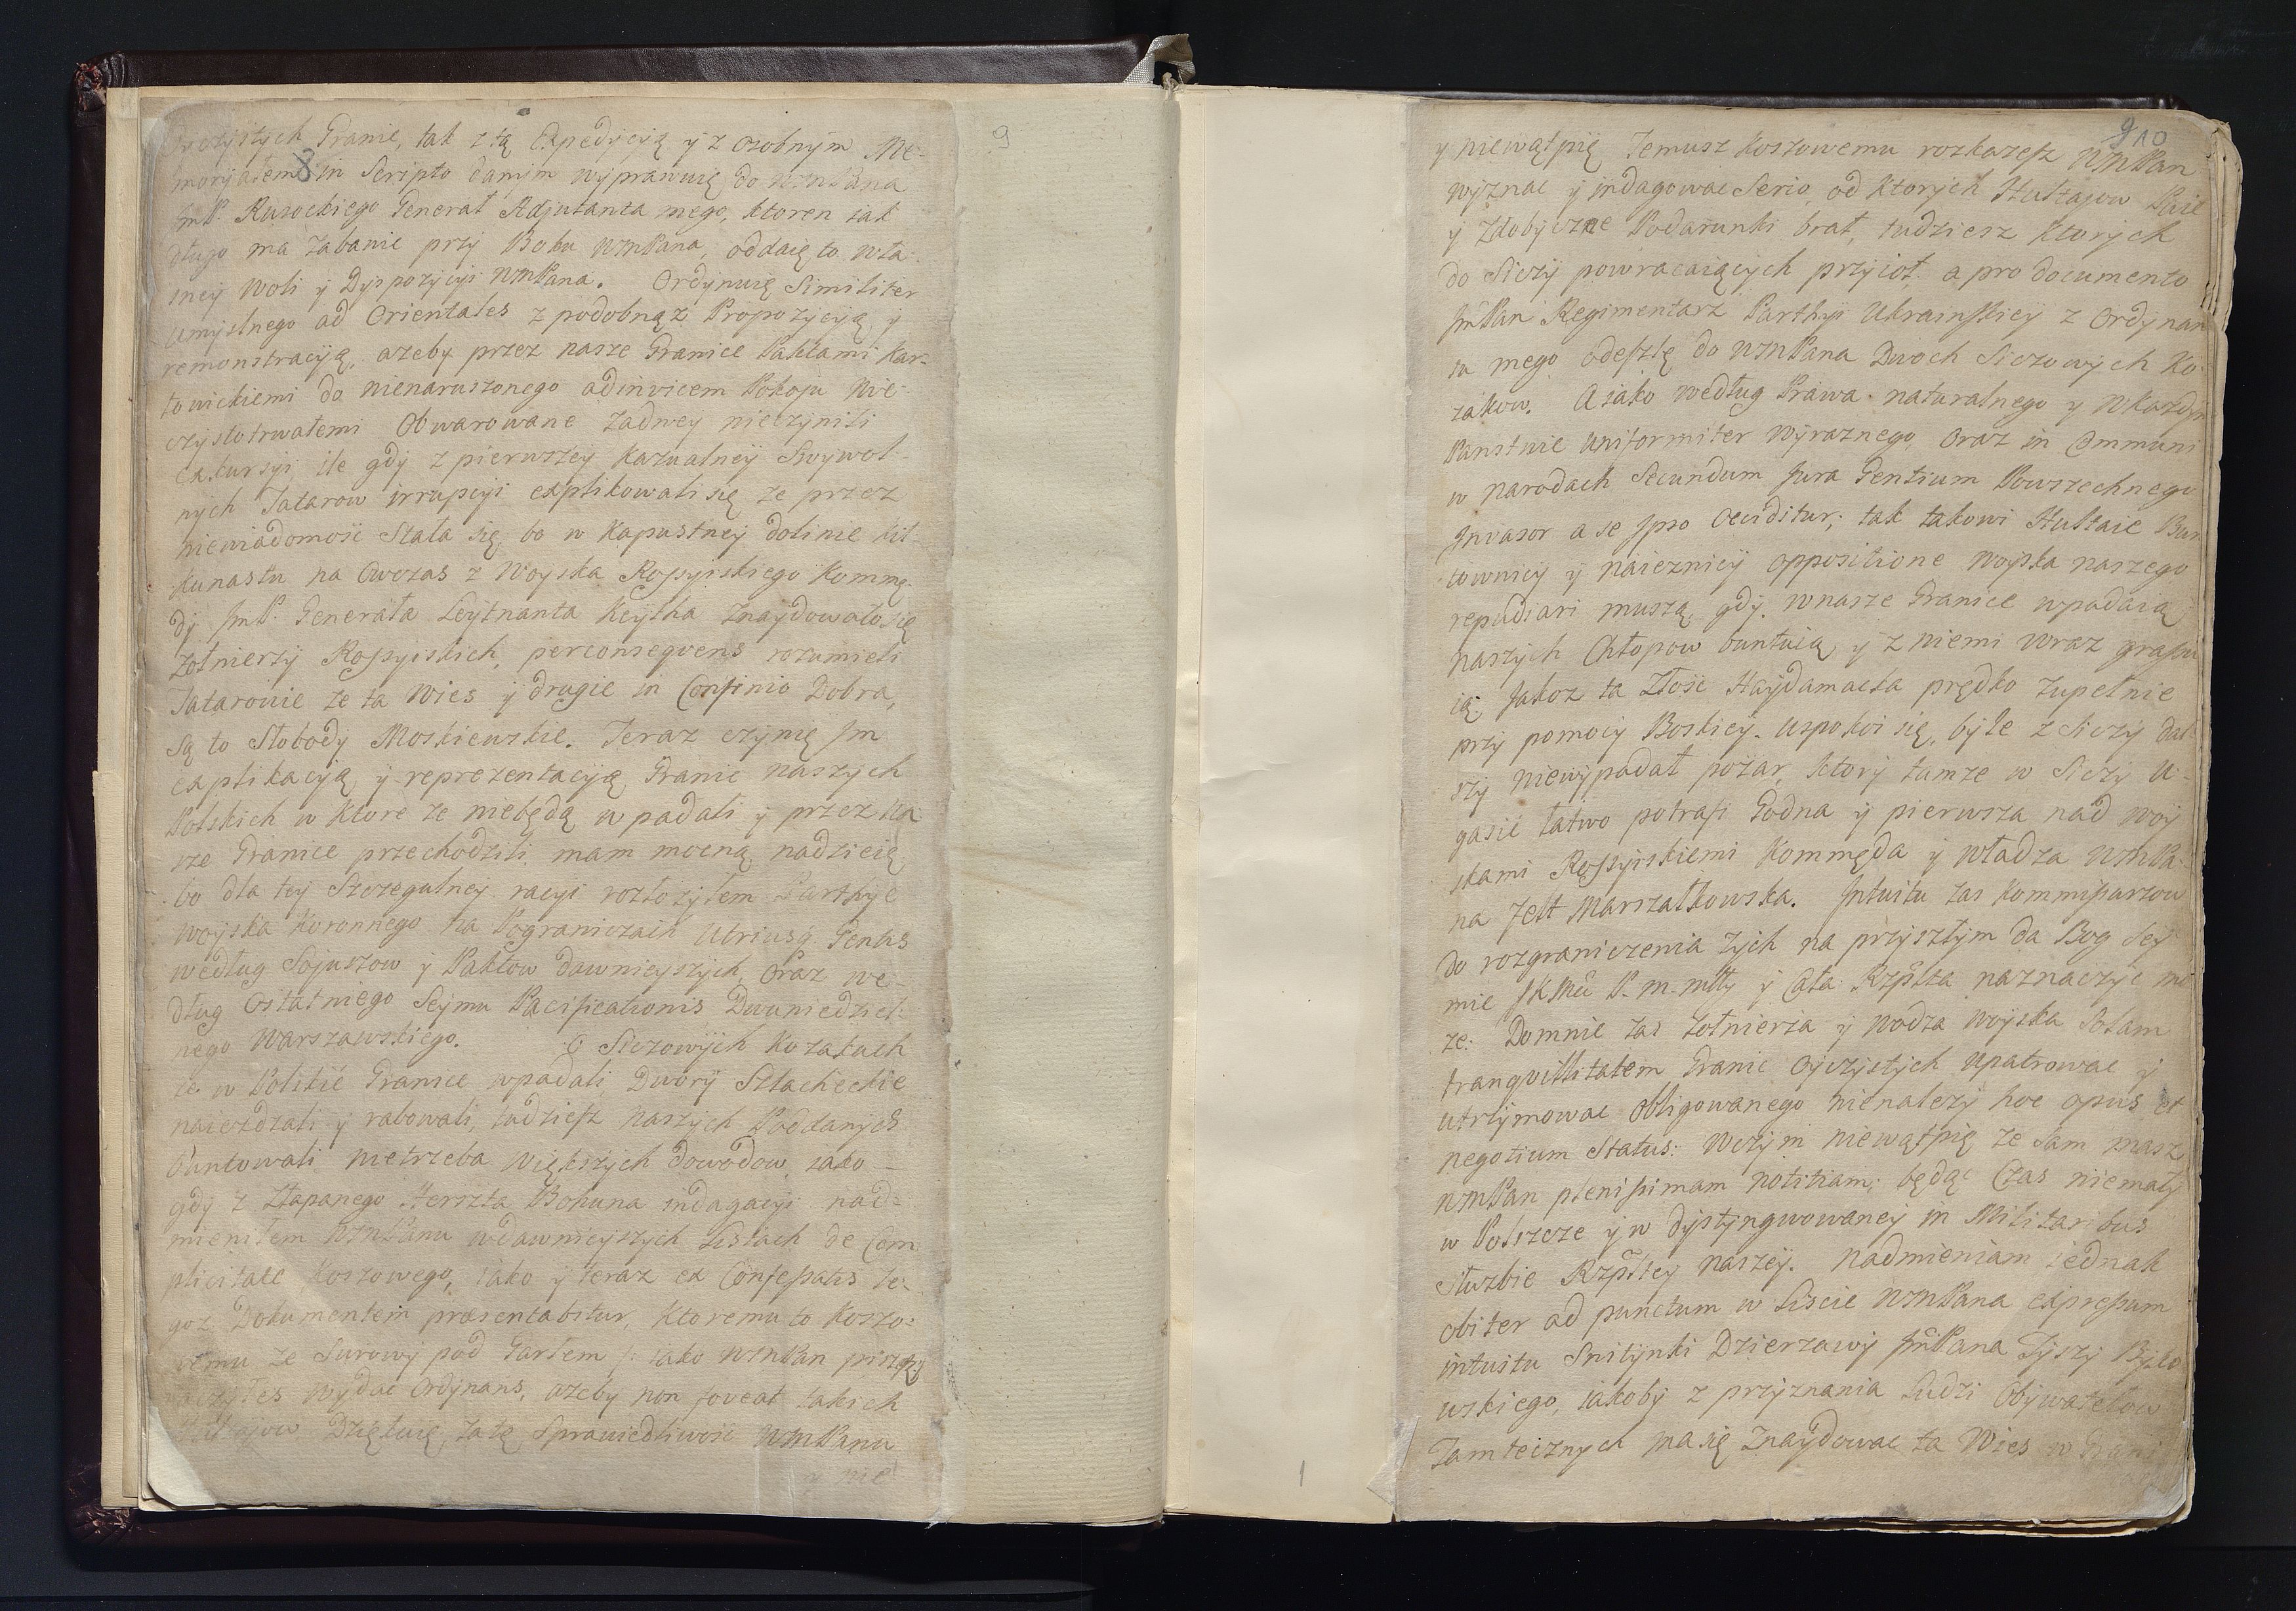 Oyczystych Granic, tak z tą Expedycyą y z osobnym Me-
moryałem in Scripto danym wyprawuię do WMPana
JmP. Rusockiego Generał Adjutanta mego, ktoren iak
długo ma zabawić przy Boku WMPana, oddaię to wła-
sney Woli y Dyspozycyi WMPana. Ordynuię Similiter
umyslnego ad Orientales z podobnąż Propozycyą y
remonstracyą, azeby przez nasze Granice Paktami Kar-
łowickiemi do nienaruszonego adinvicem Pokoju wie-
czystotrwałemi Obwarowane żadney nieczynili
exkursyi ile gdy z pierwszey kazualney Swywol-
nych Tatarow irrupcyi explikowali się ze przez
niewiadomość Stała się, bo w Kapustney dolinie kil-
kunastu na Owczas z Woyska Rossyiskiego Kommę-
dy JmP. Generała Leytnanta Keytha znaydowało się
Zołnierzy Rossyiskich, perconsequens rozumieli
Tatarowie ze ta Wies y drugie in Confinio Dobra,
są to Słobody Moskiewskie. Teraz czynię Jm
explikacyą y reprezentacyą Granic naszych
Polskich w ktore ze niebędą wpadali y przez na-
sze Granice przechodzili mam mocną nadzieię
bo dla tey Szczegulney racyi rozłożyłem Parthye
woyska Koronnego na Pograniczach Utriusq. Gentis
według Sojuszow y Paktow dawnieyszych, Oraz we-
dług Ostatniego Seymu Pacificationis Dwuniedziel-
nego Warszawskiego. O Siczowych Kozakach
ze w Polskie Granice wpadali, Dwory Szlacheckie
naiezdzali y rabowali, tudziesz naszych Poddanych
buntowali nietrzeba Większych dowodow iako
gdy z Złapanego Herszta Bohuna indagacyi nad-
mieniłem WMPanu w dawnieyszych Listach de Com
plicitate Koszowego, iako y teraz ex Confessatis te-
goz Dokumentem praesentabitur, Ktoremu to Koszo-
wemu ze Surowy pod Garłem /: iako WMPan piszesz
raczyłes wydać Ordynans, azeby non foveat takich
Hultajow Dziękuię zatę Sprawiedliwość WMPanu
y nie
9
9 10
y niewątpię Temusz Koszowemu rozkazesz WMPan
wyznac y indagowac Serio, od ktorych Hultajow Paie
y Zdobyczne Podarunki brał, tudziesz ktorych
do Siczy powracaiących przyioł, a pro documento
JmPan Regimentarz Parthyi Ukrainskiey z Ordynan
su mego odeszlę do WMPana Dwoch Siczowych Ko-
zakow. A iako według Prawa naturalnego y w każdym
Panstwie Uniformiter Wyraznego, Oraz in Communi
w narodach Secundum Jura Gentium Powszechnego
Invasor a se ipso Occiditur; tak takowi Hultaie Bun
townicy y naieznicy oppositione woyska naszego
repudiari muszą, gdy w nasze Granice wpadaią
naszych Chłopow buntuią, y z niemi wraz grassu
ią. Jakoz ta Złość Haydamacka prędko zupełnie
przy pomocy Boskiey uspokoi się, byle z Siczy dal
szy niewypadał pożar, ktory tamze w Siczy U-
gasić łatwo potrafi Godna y pierwsza nad woy
skami Rossyiskiemi Kommęda y władza WMPa-
na Felt Marszałkowska. Intuitu zas Kommissarzow
do rozgraniczenia tych na przyszłym da Bog Sey
mie JKMć P. m. młły y Cała Rzplta naznaczyć mo
ze: Domnie zas Zołnierza y wodza woyska Solam
tranqvillitatem Granic Oyczystych upatrowac y
utrzymowac obligowanego nienalezy hoc opus et
negotium Status: Wczym niewątpię ze Sam masz
WMPan plenissimam notitiam; będąc Czas niemały
w Polszcze y w dystyngwowaney in Militaribus
Służbie Rzpltey naszey. Nadmieniam iednak
obiter ad punctum w Liscie WMPana expressum
intuitu Snitynki Dzierzawy JmPana Tyszy Byko
wskiego, iakoby z przyznania ludzi Obywatelow
Tamtecznych ma się znaydować ta Wies w Grani
1